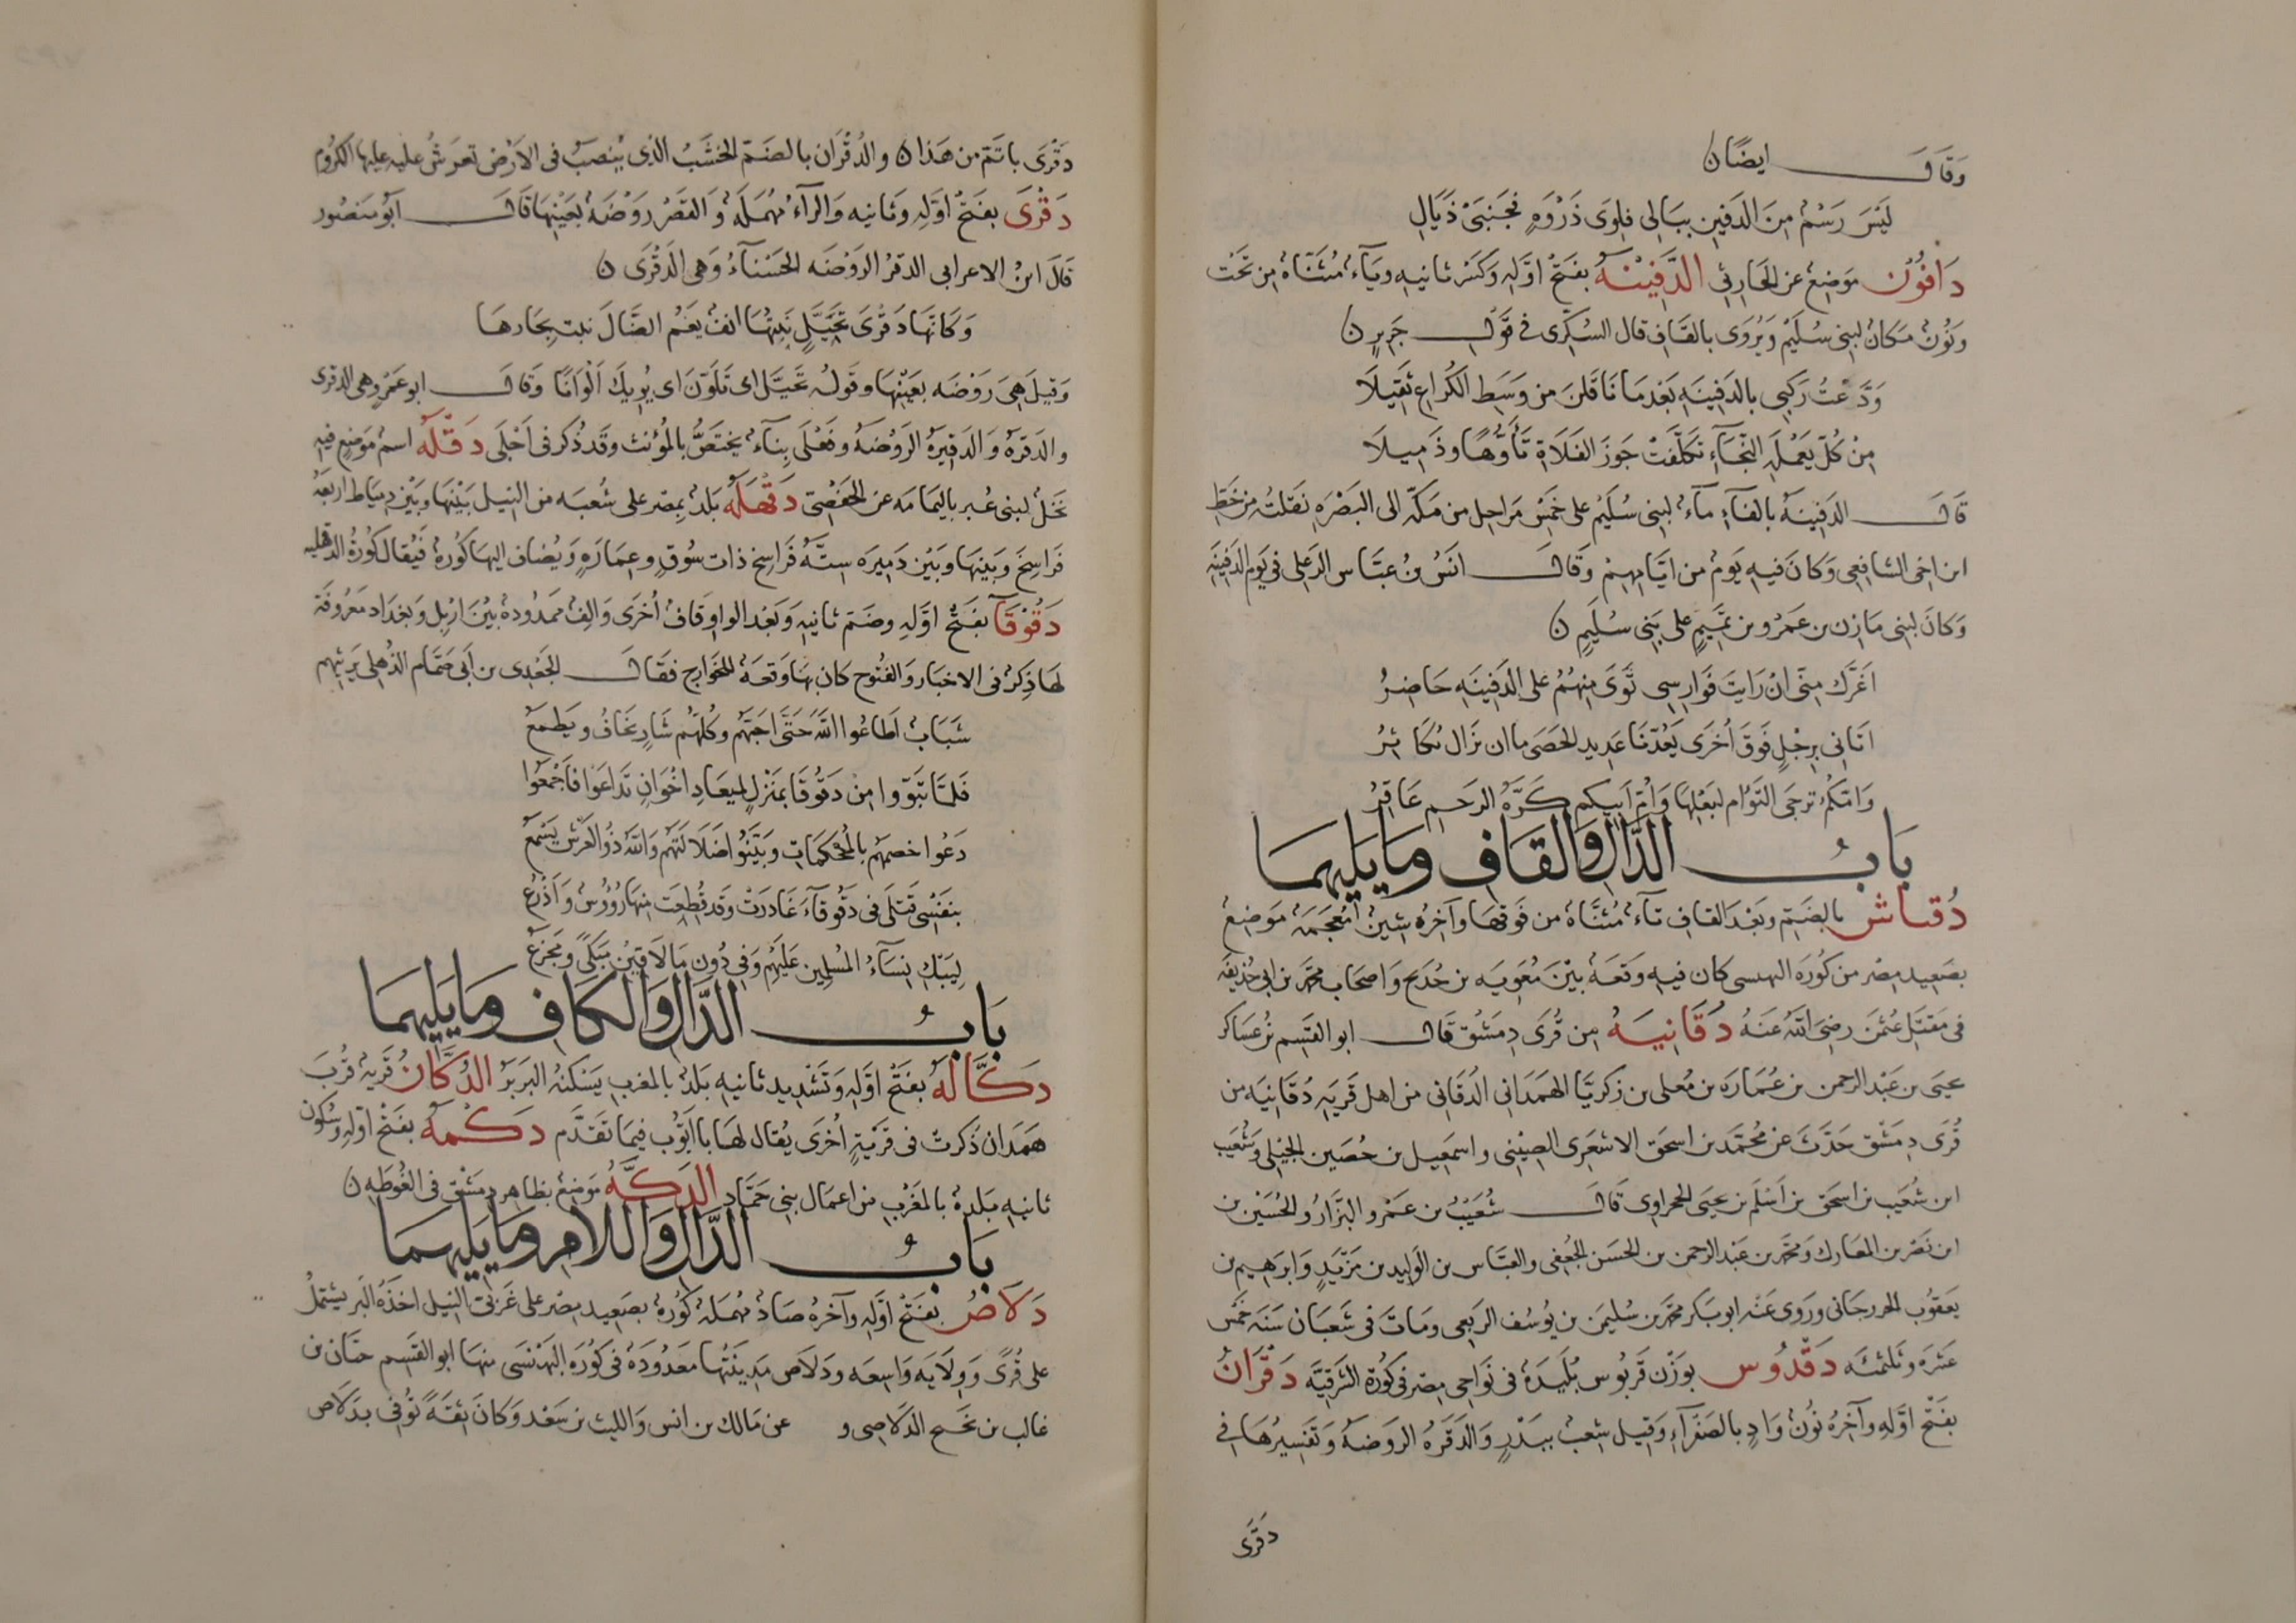 وَقَالَ ايضًا ن
لَيْسَ رَسْمٌ مِنَ الدَفِينِ بِبَالِى فلِوَى ذَرْوَةٍ فَجَنبَىْ ذَيَالِ
دَافُوْن مَوضِعٌ عن الحَازِمِي الدَّفِيْنَةُ بفَتْحِ اوَّلِهِ وَكَسْر ثانيهِ ويَاءٌ مُثَنَّاة مِن تَحْت
وَنُونٌ مَكانٌ لبنِى سُلَيْمٍ وَيُروَى بالقَافِ قال السُكرَّى فى قَوْلِ جَرِيرٍ ن
وَدَّعْتُ رَكبِى بالدَفِينَهِ بَعْدمَا نَاقَلنَ من وَسَطِ الكُرَاعِ نَقِيلَا
مِنْ كُلّ يَعْمُلَهِ النَّجَاءِ تكلَّفَتْ جَوزَ الفَلَاةِ تَأوُّهًا وذَمِيلَا
قَالَ الدَفِينَهُ بالفاءِ ماءٌ لبنِى سُلَيْم على خَمْسِ مَرَاحِل من مَكّه الى البَصْرَهِ نَقَلتُه مِن خَطِّ
ابن اخى الشافِعِى وَكانَ فيهِ يَوْمٌ من ايَّامِهِمْ وَقَالَ انَسُ بنُ عبَّاس الرِعْلى فى يَوم الدَفِينَهِ
وَكانَ لبنِى مَازِن بن عَمْرو بن تَمِيْمٍ على بَنِى سُلَيمٍ ن
اَغَرَّك مِنّى انْ رَايتَ فَوَارِسِى ثَوَى مِنْهُمُ على الدَفِينَهِ حَاضِرُ
اتَانِى بِرِجْلٍ فَوقَ أُخرَى يَعُدّنَا عَدِيد الحَصَى ما ان نَزَال نُكَاثِرُ
وَامّكُمُ ترجَى التَوْام لبَعْلِهَا وَاُمّ اَبِيكم كَزَّهُ الرَحَم عَاقِرُ
بَابُ الدَّالِ وَالقَافِ وَمَا يَليهمَا
دُقتَاش بالضَمّ وبَعْدَ القاف تاءٌ مُثنَّاة من فَوقهَا وآخِرُه شِينٌ مُعجَمَهٌ مَوضِعٌ
بصَعِيد مِصْر من كُورَه البهنسى كان فيهِ وَقعَهٌ بَيْنَ مُعَويَه بن خُدَيج وَاصحَاب محمّد بن ابى حُذيفَه
فى مَقتَلِ عُثمٰنَ رضى اللهُ عَنهُ دُقَانِيَهُ من قُرَى دِمَشْق قَالَ ابو القَسِم بن عسَاكر
يحيَى بن عَبْد الرحمن بن عُمَارَه بن مُعلى بن زكريَّا الهَمَدَانى الدُقَانى من اهل قَريَهِ دُقَانيَه من
قُرَى دِمَشْق حَدَّثَ عن مُحمّد بن اسحق الاشعَرِى الصِيْنِى واسمَعِيل بن حُصَين الجبلى وَشعَيب
ابن شُعَيب بن اسحَق بن اَسْلَم بن يحيَى الحراوى قَالَ شُعَيْبُ بن عَمْرو البَزَّارُ والحُسَيْن بن
ابن نَصْر بن المعَارك وَمحمّد بن عَبْد الرحمن بن الحسَن الجعُفى والعَبَّاس بن الوَليد بن مَزْيَدٍ وَابرَهيم بن
يَعقوُب الجورجَانى وروَى عَنْه ابو بَكر محمّد بن سُليمَن بن يوُسُف الرَبَعِى ومَاتَ فى شَعبَان سَنَه خمس
عَشرَه وثلثمئَه دَقْدُوس بوَزْن قَرَبُوس بُلَيدَةٌ فى نَواحِى مِصْر فى كُورَة الشَرقيَّه دَقَرَانُ
بفَتْح اوَّلهِ وآخِرُهُ نُونٌ وَادٍ بالصَفْرَاءِ وَقِيل شِعبٌ ببَدْرٍ وَالدَقَرَهُ الرَوضَهُ وَتفسِيرُهَا فى
دقَرَى
دَقَرَى باتَمّ من هَذا ن والدُقْرَان بالضَمّ الخشَبُ الذى يُنصَبُ فى الاَرْضِ تَعرَشُ عليه عليها الكرُوم
دَقَرَى بفَتْح اوَّلِهِ وثانيه وَالرآءُ مُهمَلَهٌ وَالقَصْرُ رَوْضَهٌ بعَيْنِهَا قَالَ اَبُو مَنصُور
قَالَ ابنُ الاعرابى الدقرُ الرَوْضَه الحَسْنَاءُ وَهى الدَقَرَى ن
وَكَانّهَا دَقَرَى تَخَيَّلُ نَبتُهَا انفٌ يَغُم الضَّالَ نبت بِحَارهَا
وَقيلَ هِىَ رَوْضَه بعَيْنِهَا وقولُه تَخَيَّل اى تَلَوّنَ اى يُريكَ اَلْوَانًا وَقَالَ ابو عَمْرٍو هى الدقرى
والدَقرَهُ وَالدَقِيرَهُ الرَوْضَهُ وفَعَلَى بنَاءٌ يختصُّ بالمُؤنث وقَد ذُكر فى اَجَلَى دَقَلَهُ اسمُ مَوضِعٍ فيهِ
نَخلٌ لبنِى غُبر باليَمامَه عن الحَفْصِىّ دَقَهْلَهُ بَلدٌ بمِصر على شُعبَه من النِيل بَيْنَهَا وبَيْن دِميَاط اربَعَهُ
فَرَاسِخَ وَبَينَهَا وبَيْن دَمِيرَه ستّهُ فَرَاسِخ ذات سُوْقٍ وعِمَارَهٍ وَيُضاف اليهَا كُورَةٌ فَيُقال كُورَةُ الدَقهليه
دَقُوقَآ بفَتْحِ اوَّلِه وضَمّ ثانِيهِ وَبَعْد الواو قَافٌ اُخرَى وَالِفٌ مَمدُودَهٌ بَيْنَ اربِل وَبَغدَاد مَعرُوفَة
لهَا ذِكرٌ فى الاخبَار وَالفُتُوح كان بهَا وَقعَهٌ للخوَارج فقَالَ الجَعْدِى بن اَبى صَمَّام الذُهلى يَرثيهم
شَبَابٌ اَطَاعُوا اللهَ حَتَّى اَحَبَّهُم وكُلُّهُم شَارٍ يخَافُ ويَطمَعُ
فَلمَّا تبَوّوا مِنْ دَقُوقَا بمَنْزِل لميعَادِ اخْوَانٍ تَدَاعَوا فَاَجْمَعُوا
دَعَوا خصمهُم بالمُحْكمَاتِ وبَيَّنُوا ضَلَالَتَهُم وَاللهُ ذُو العَرْش يَسْمَعُ
بنَفْسِى قَتلَى فى دَقُوقآءَ غَادَرَتْ وقَد قُطِعَت مِنهَا رُؤُوسٌ وَاَذْرُعُ
لِيَبْكِ نِسَاءُ المُسْلِمِين عَلَيْهُم وَفِى دُونِ مَا لَاقَيْنَ مَبْكًى وَمَجْزَعُ
بَابُ الدَّالِ وَالكافِ وَمَا يَليهِمَا
دَكَّالَهُ بفَتْحِ اوَّلِهِ وتَشْدِيد ثانيهِ بَلدٌ بالمغرب يَسْكنُهُ البَربَرُ الدُكَّانُ قَريَهٌ قُربَ
هَمَدَان ذُكرَتْ فى قَرْيَةٍ اُخرَى يُقال لهَا باايّوُب فيمَا تَقَدَّم دَكْمَهُ بفَتْح اوّلهِ وسُكون
ثانيهِ بَلدةٌ بالمغَرْب من اعمَال بَنِى حَمَّاد الدَكَّهُ مَوضِعٌ بظاهِر دِمَشْق فى الغُوطَهِ ن
بَابُ الدَّالِ وَاللامِ وَمَا يَليهِمَا
دَلَاصُ بفَتْح اوَّلِهِ وآخرُهُ صَادٌ مُهمَلَهٌ كُورَةٌ بصَعيد مِصْر على غَربِىّ النِيل اخذَهُ البَر يشتمِلُ
على قُرًى وَوِلَايَه وَاسِعَه ودَلَاص مَدِينَتُهَا مَعدُودَهٌ فى كُورَه البَهْنسَى منهَا ابو القَسِم حسَّان بن
غالب بن نَجَيح الدَلَاصِى و عن مَالك بن انس وَالليث بن سَعْد وَكانَ ثقَهً تُوُفِى بدَلَاص